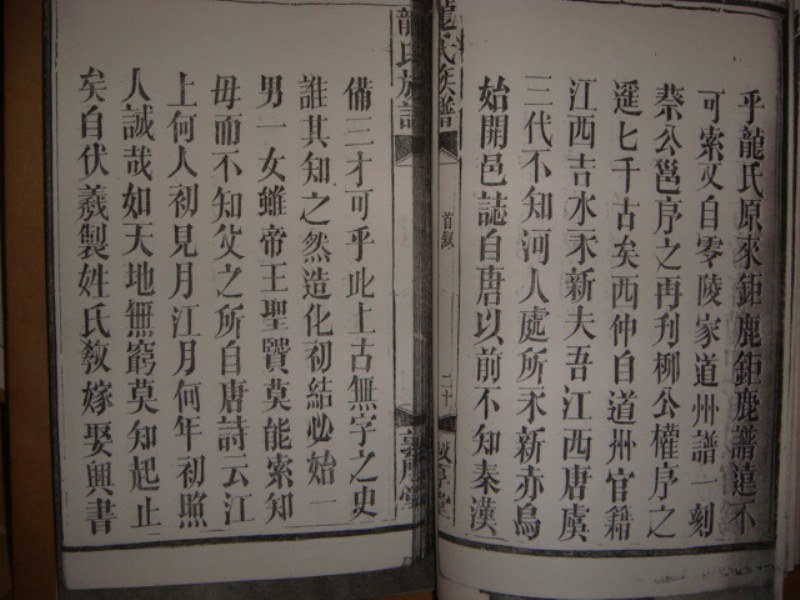 乎龍氏原來鉅鹿鉅鹿譜遠不
可索又自零陵家道州譜一刻
蔡公邕序之再刋柳公權序之
遥七千古矣西仲自道州官籍
江西吉水永新夫吾江西唐虞
三代不知河人處所永新赤烏
始開邑誌自唐以前不知秦漢
龍氏族譜
首叙
二十
龍氏族譜
備三才可乎此上古無字之史
誰其知之然造化初結必始一
男一女雖帝王聖賢莫能索知
毋而不知父之所自唐詩云江
上何人初見月江月何年初照
人誠哉如天地無窮莫知起止
矣自伏羲製姓氏教嫁娶興書